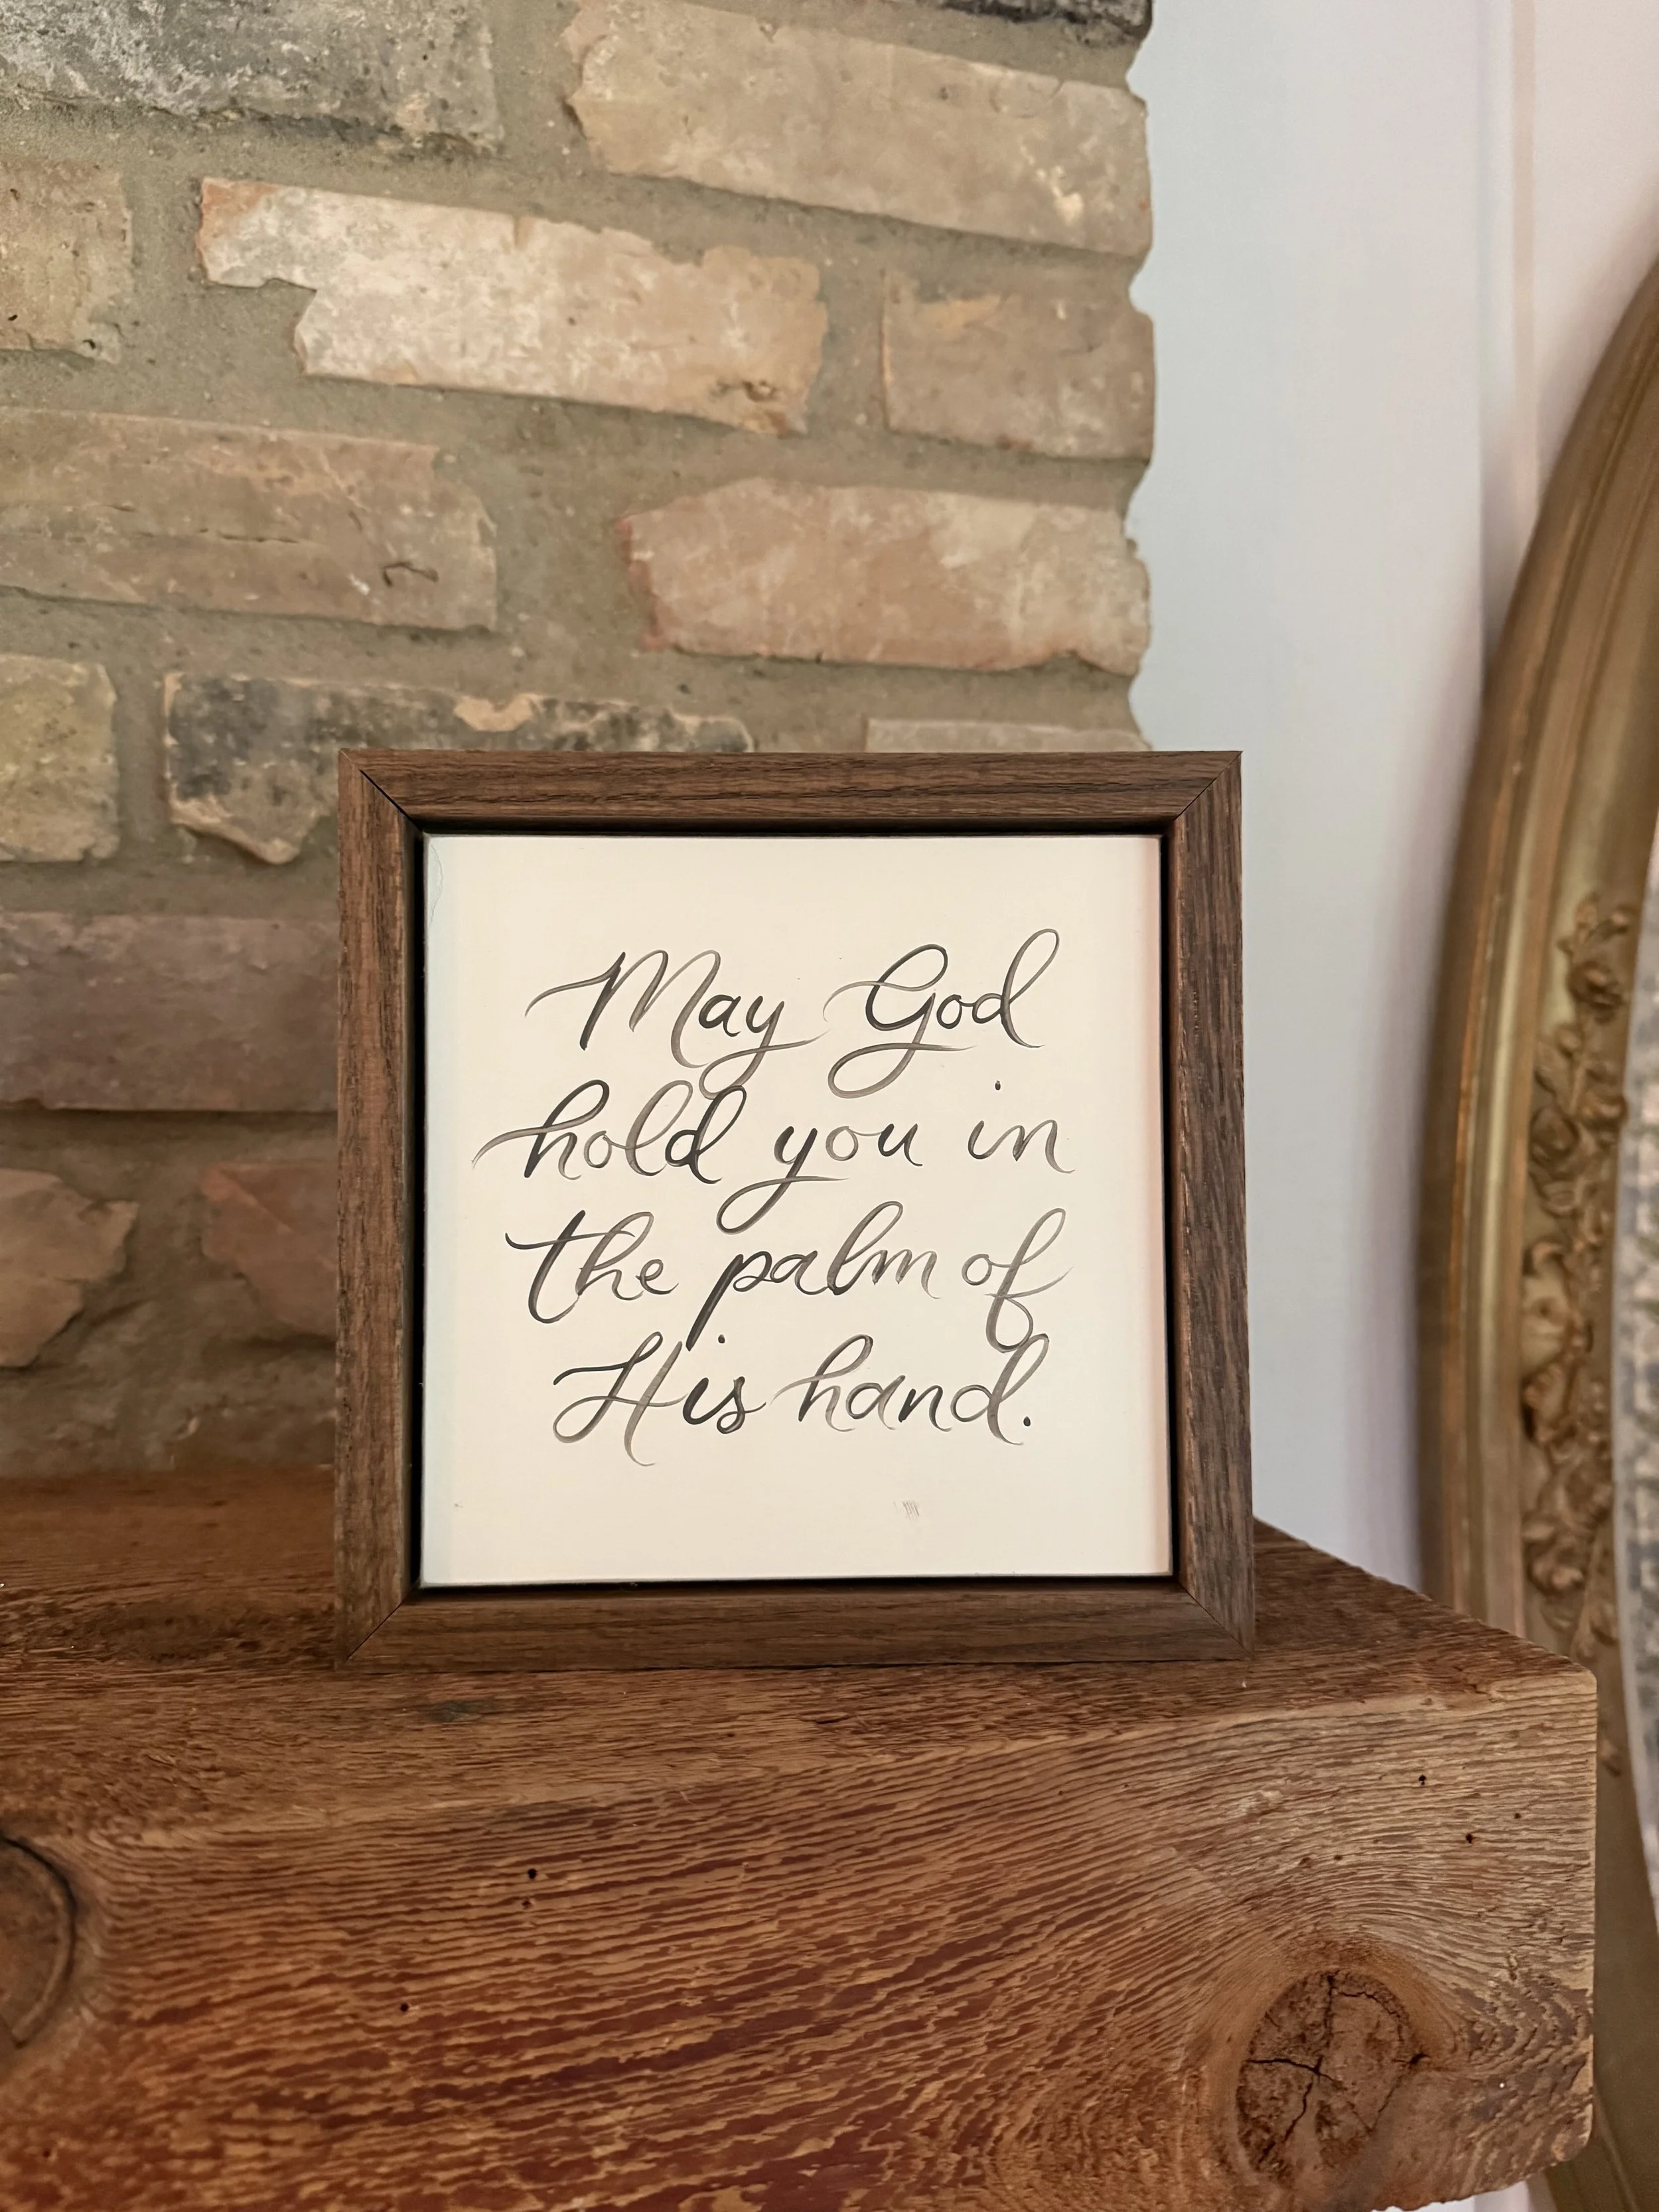 May God
hold you in
the palm of
His hand.